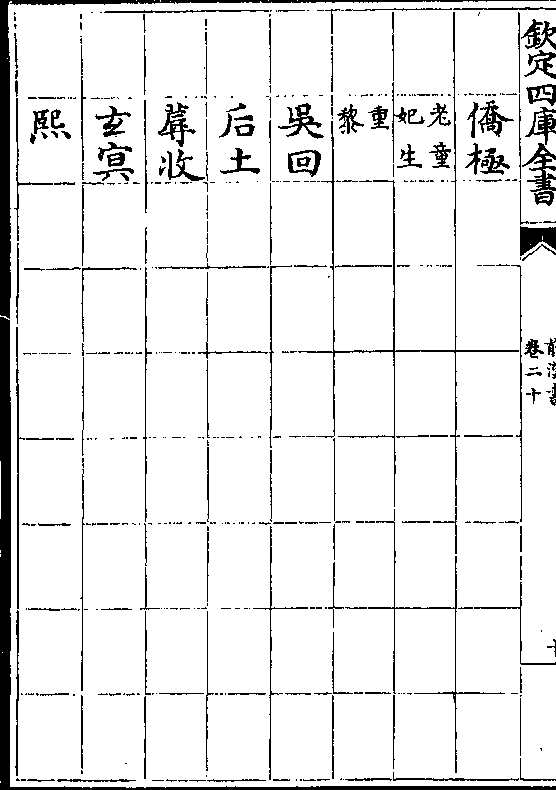 欽定四庫全書
前漢書
卷二十
僑極
老童
妃生
重
黎
吳回
后土
蓐收
玄冥
熙